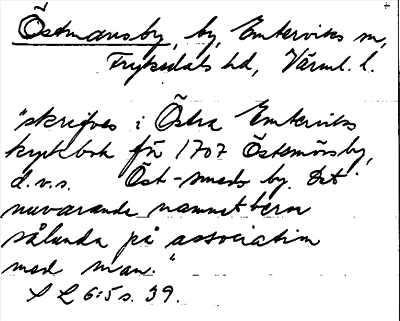 Östmansby, by, Emterviks sn,
Fryksdals hd, Värml. l.
"skrifves i Östra Emterviks
kyrkbok från 1707 Östsmósby,
d.v.s. Öst-smeds by. Det
nuvarande namnet beror
sålunda på association
med man."
S L 6:5 s. 39.